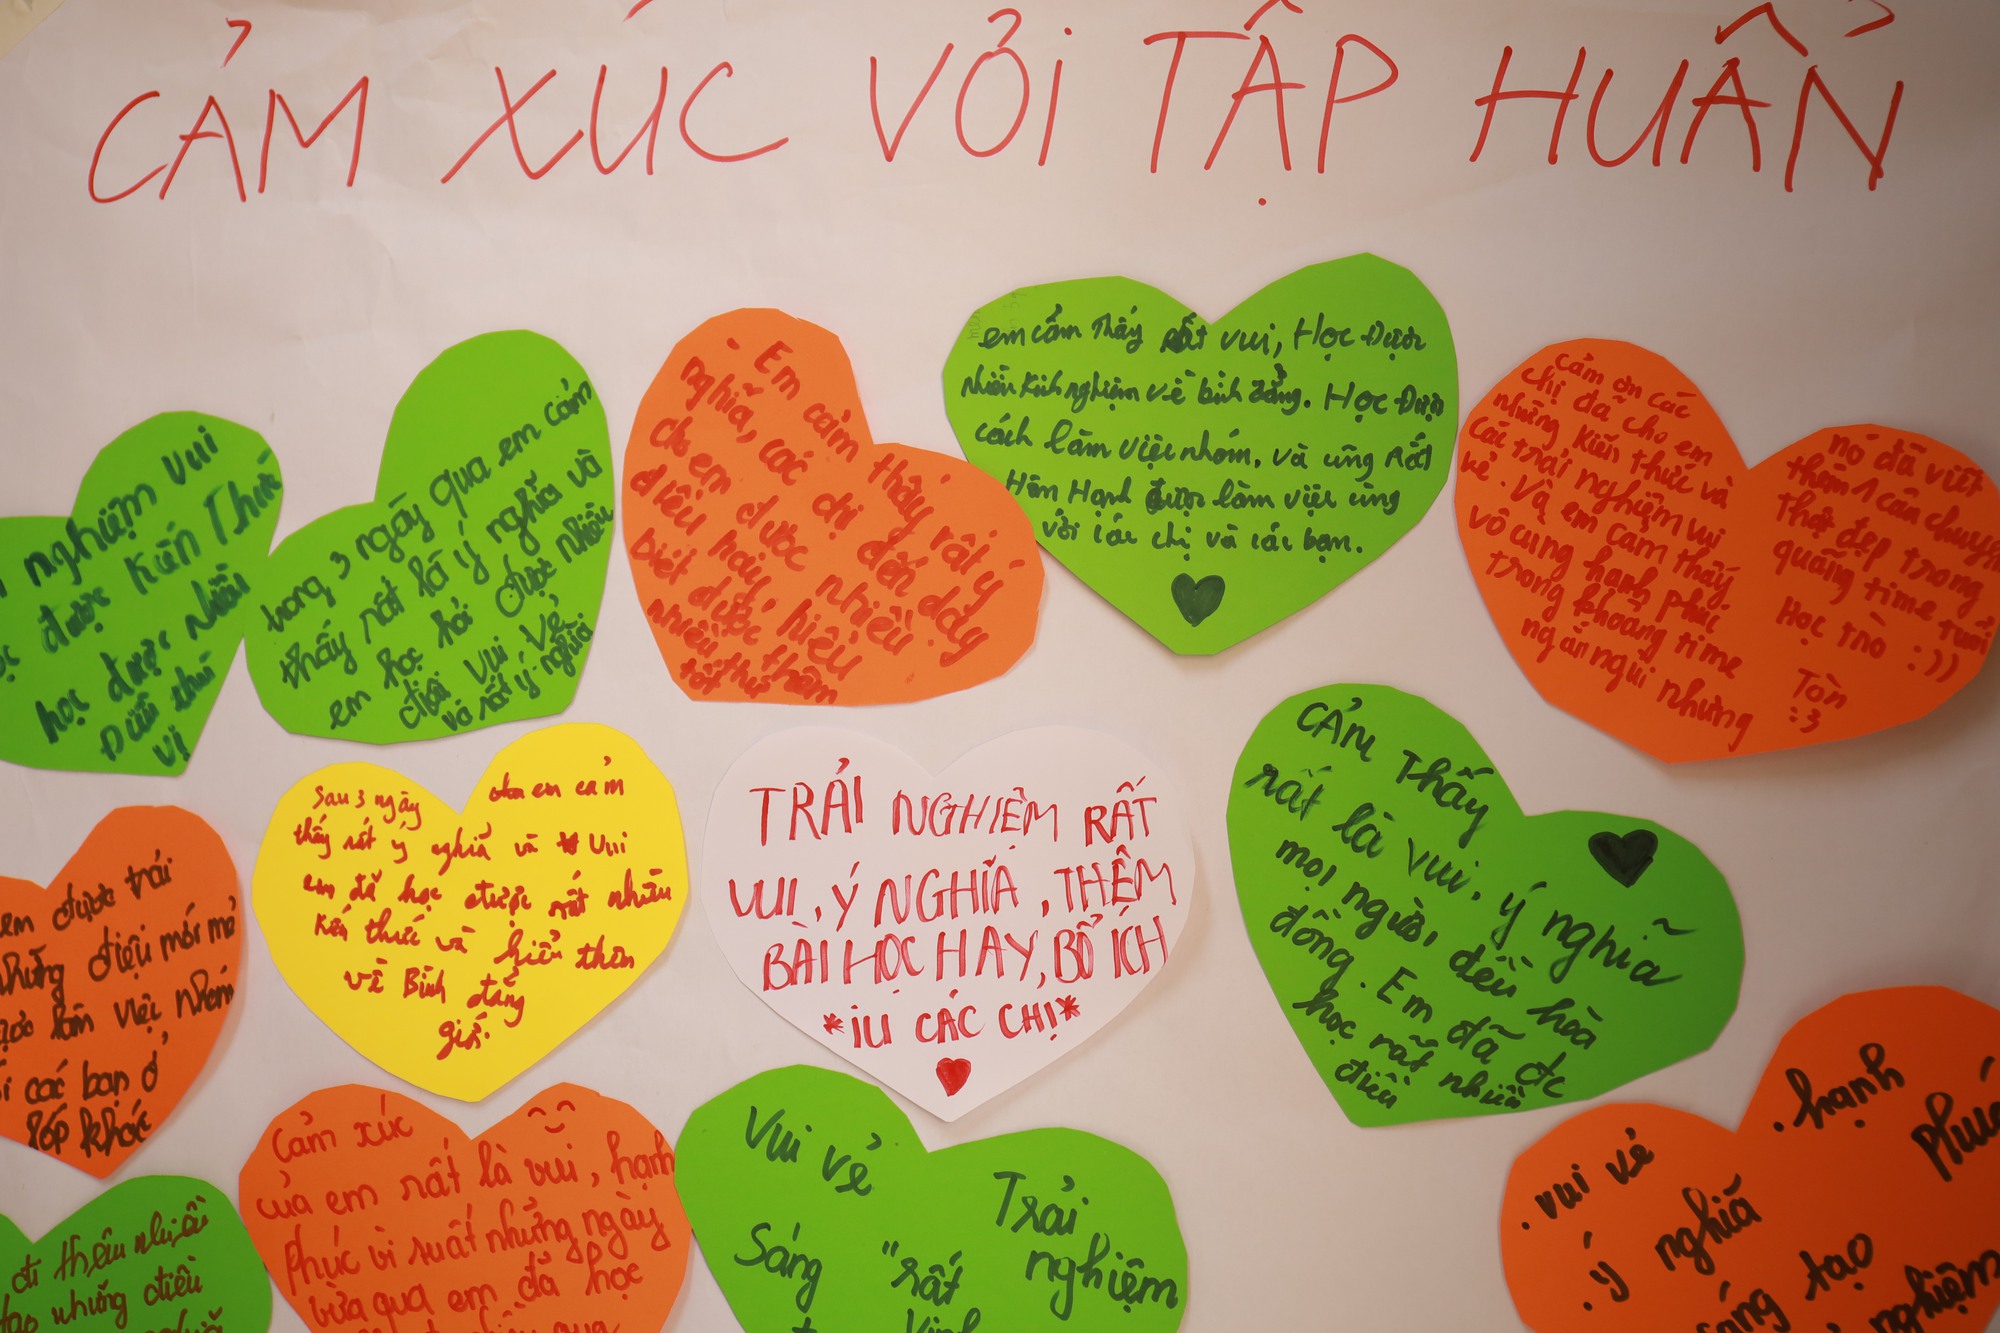 CẢM XÚC VỚI TẬP HUẤN
nghiệm vui
được kiến thức
học được nhiều
Điều thú
vị
trong 3 ngày qua em cảm
thấy rất là ý nghĩa và
em học hỏi được nhiều
điều vui vẻ
và rất ý nghĩa
. Em cảm thấy rất ý
nghĩa, các chị đến dạy
cho em được nhiều
điều hay, hiểu
biết được thêm
nhiều thứ
tốt
em cảm Thấy rất vui, Học Được
nhiều kinh nghiệm về bình đẳng. Học Được
cách làm việc nhóm. và cũng Rất
Hân Hạnh được làm việc cùng
với các chị và các bạn.
cảm ơn các
chị đã cho em
những kiến thức và
các trải nghiệm vui
vẻ. Và em cảm thấy
vô cùng hạnh phúc
trong khoảng time
ngắn ngủi nhưng
nó đã viết
thêm 1 câu chuyện
thật đẹp trong
quãng time tuổi
Học trò :))
Tòn
:3
em được trải
những điều mới mẻ
làm việc nhóm
các bạn ở
lớp khác
Sau 3 ngày em cảm
thấy rất ý nghĩa và vui
em đã học được rất nhiều
kiến thức và hiểu thêm
về Bình đẳng
giới.
TRẢI NGHIỆM RẤT
VUI, Ý NGHĨA, THÊM
BÀI HỌC HAY, BỔ ÍCH
*IU CÁC CHỊ*
CẢM THẤY
rất là vui, ý nghĩa
mọi người đều hòa
đồng. Em đã đc
học rất nhiều
điều
đi thêm nhiều
tạo những điều
Cảm xúc
của em rất là vui, hạnh
phúc vì suốt những ngày
vừa qua em đã học
Vui vẻ
Trải
nghiệm
Sáng
"rất
. hạnh
phúc
. vui vẻ
. ý nghĩa
sáng tạo
nghiệm